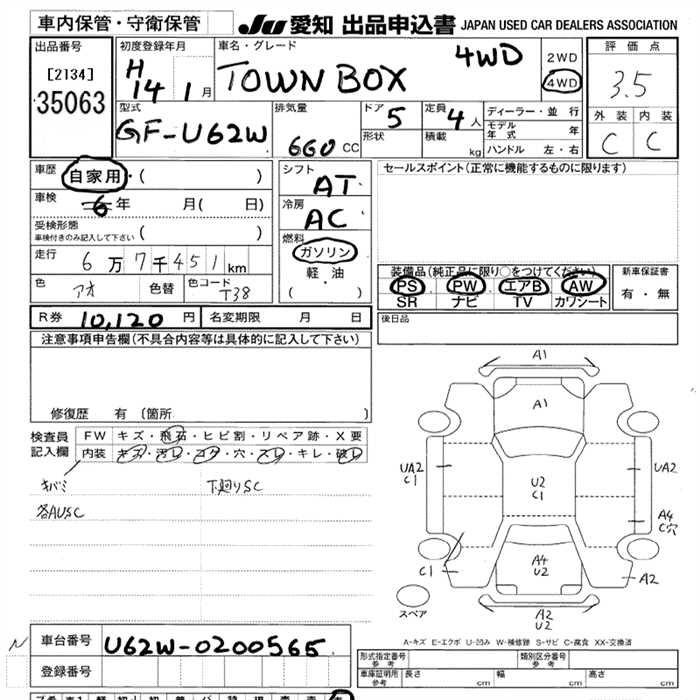 車内保管・守衛保管
JU 愛知 出品申込書 JAPAN USED CAR DEALERS ASSOCIATION
出品番号
[2134]
35063
初度登録年月
H
14 1月
車名・グレード
TOWN BOX 4WD
2WD
4WD
評価点
3.5
外装 内装
C C
型式
GF-U62W
排気量
660 CC
ドア 5
形状
定員 4 人
積載 kg
ディーラー・並行
モデル年式 年
ハンドル 左・右
車歴 自家用・( )
車検 6年 月( 日)
受検形態
車検付きのみ記入して下さい ( )
走行 6万7千451km
色 アオ 色替 色コード T38
シフト
AT
冷房
AC
燃料
ガソリン
軽・油
( )
セールスポイント(正常に機能するものに限ります)
装備品(純正品に限り○をつけてください)
PS PW エアB AW
SR ナビ TV カワシート
新車保証書
有・無
R券 10,120 円 名変期限 月 日
後日品
注意事項申告欄(不具合内容等は具体的に記入して下さい)
修復歴 有 〔箇所 〕
検査員
記入欄
FW キズ・飛石・ヒビ割・リペア跡・X要
内装 キズ・汚レ・コゲ・穴・スレ・キレ・破レ
キバミ 下廻りSC
各AUSC
A1
A1
UA2
U2
C1
UA2
A4
C穴
C1
A4
U2
A2
A2
U2
スペア
A-キズ E-エクボ U-凹み W-補修跡 S-サビ C-腐食 XX-交換済
N
車台番号 U62W-0200565
登録番号
形式指定番号
参考
類別区分番号
参考
車庫証明用
参考
長さ cm 幅 cm 高さ cm